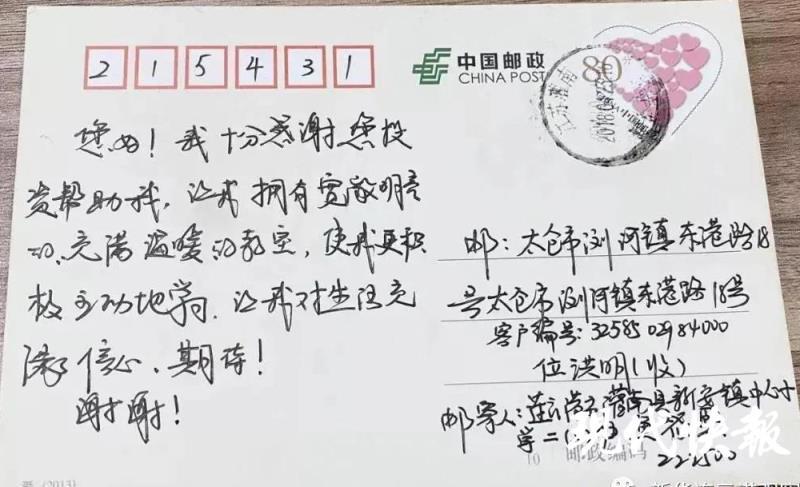 215431
中国邮政
CHINA POST
80
江苏灌南
您好！我十分感谢您投
资帮助我，让我拥有宽敞明亮
的、充满温暖的教室，使我更积
极主动地学习，让我对生活充
满了信心、期待！
谢谢！
邮：太仓市浏河镇东港路18
号太仓市浏河镇东港路18号
客户编号：3258502984000
位洪明（收）
邮寄人：连云港市灌南县新安镇中心小
学二
222500
邮政编码
现代快报
(2013)